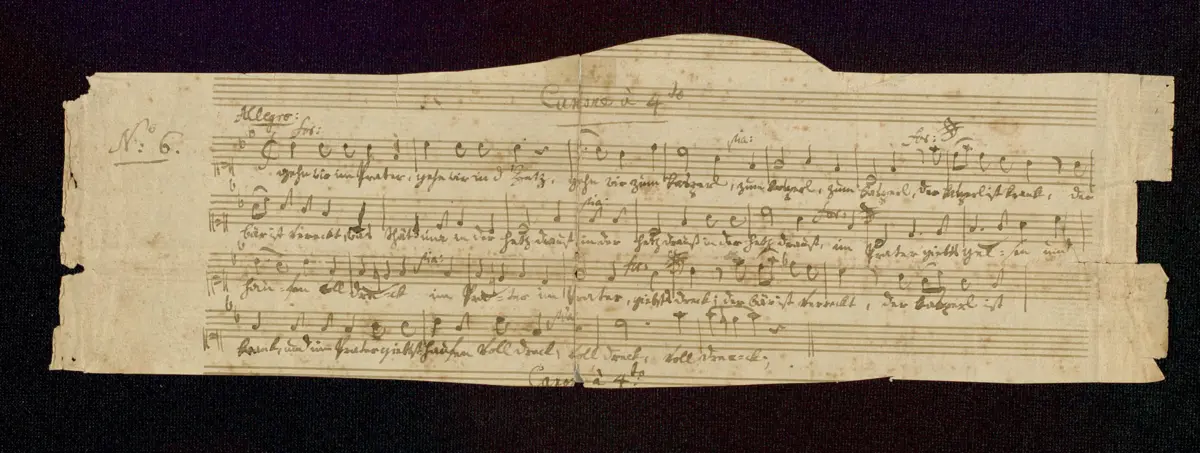 Canone à 4te
Allegro:
for:
pia:
for:
No: 6.
gehn wir im Prater, gehn wir in d' Hetz, gehn wir zum Kasperl, zum Kasperl, zum Kasperl, der Kasperl ist krank, der
pia:
for:
bär ist verreckt, was thät ma in der hetz draust, in der hetz draust, in der hetz draust, im Prater giebts gel-sen und
pia:
for:
hau-fen voll dre-ck im Pra-ter im Prater, giebts dreck; der bär ist verreckt, der Kasperl ist
pia:
krank, und im Prater giebts haufen voll dreck, voll dreck, voll dre-ck;
Canone à 4te